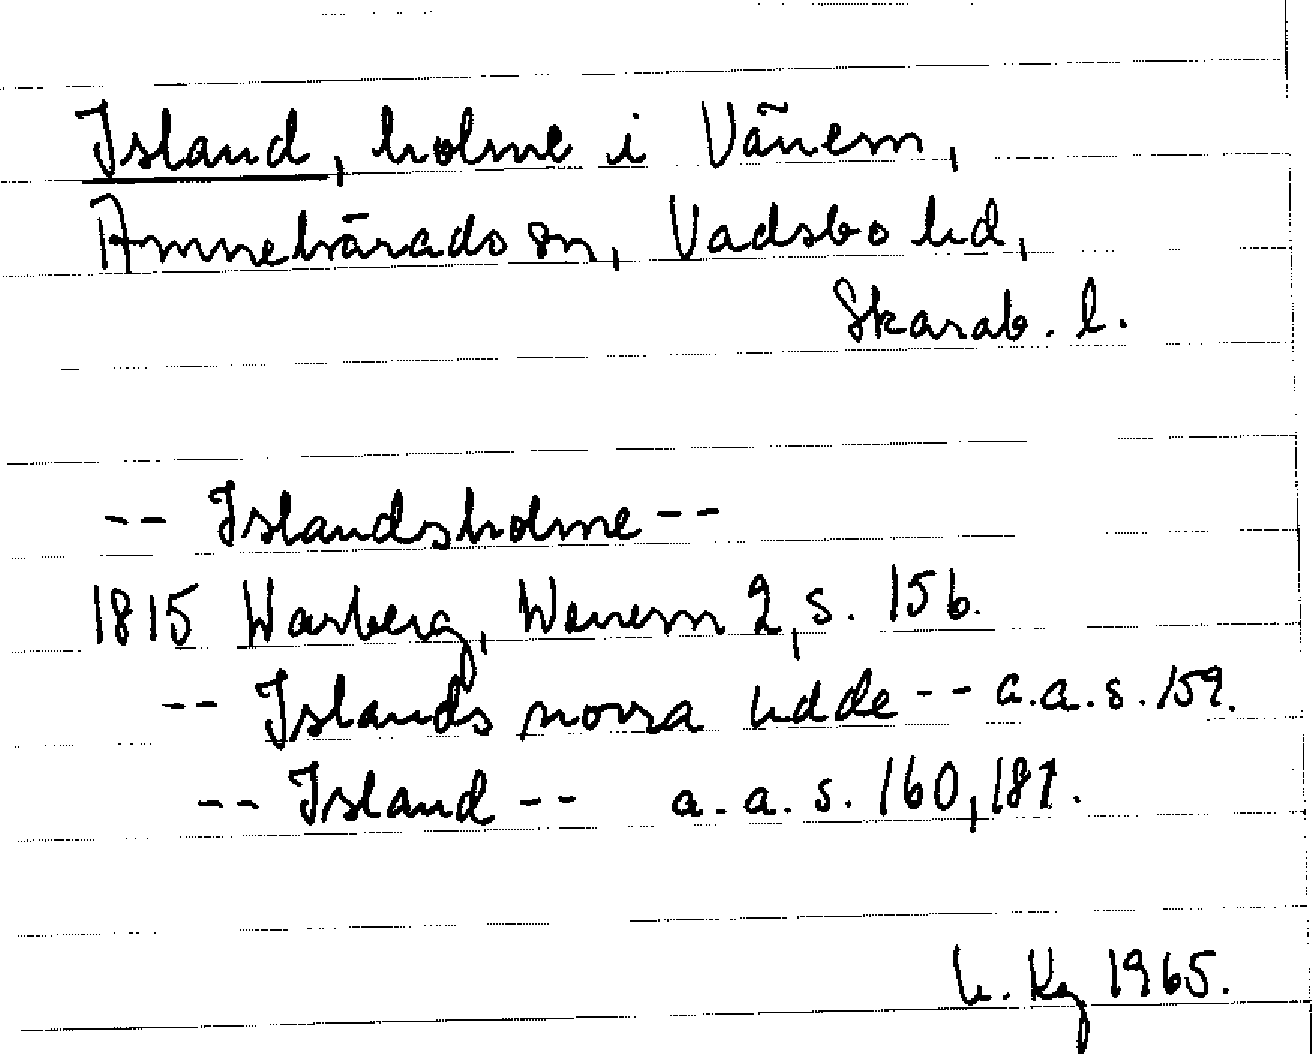 Island, holme i Vänern,
Amnehärads sn, Vadsbo hd,
Skarab. l.
-- Islandsholme --
1815 Warberg, Wenern 2, s. 156.
-- Islands norra udde -- a.a.s. 159.
-- Island -- a.a.s. 160, 181.
1965.